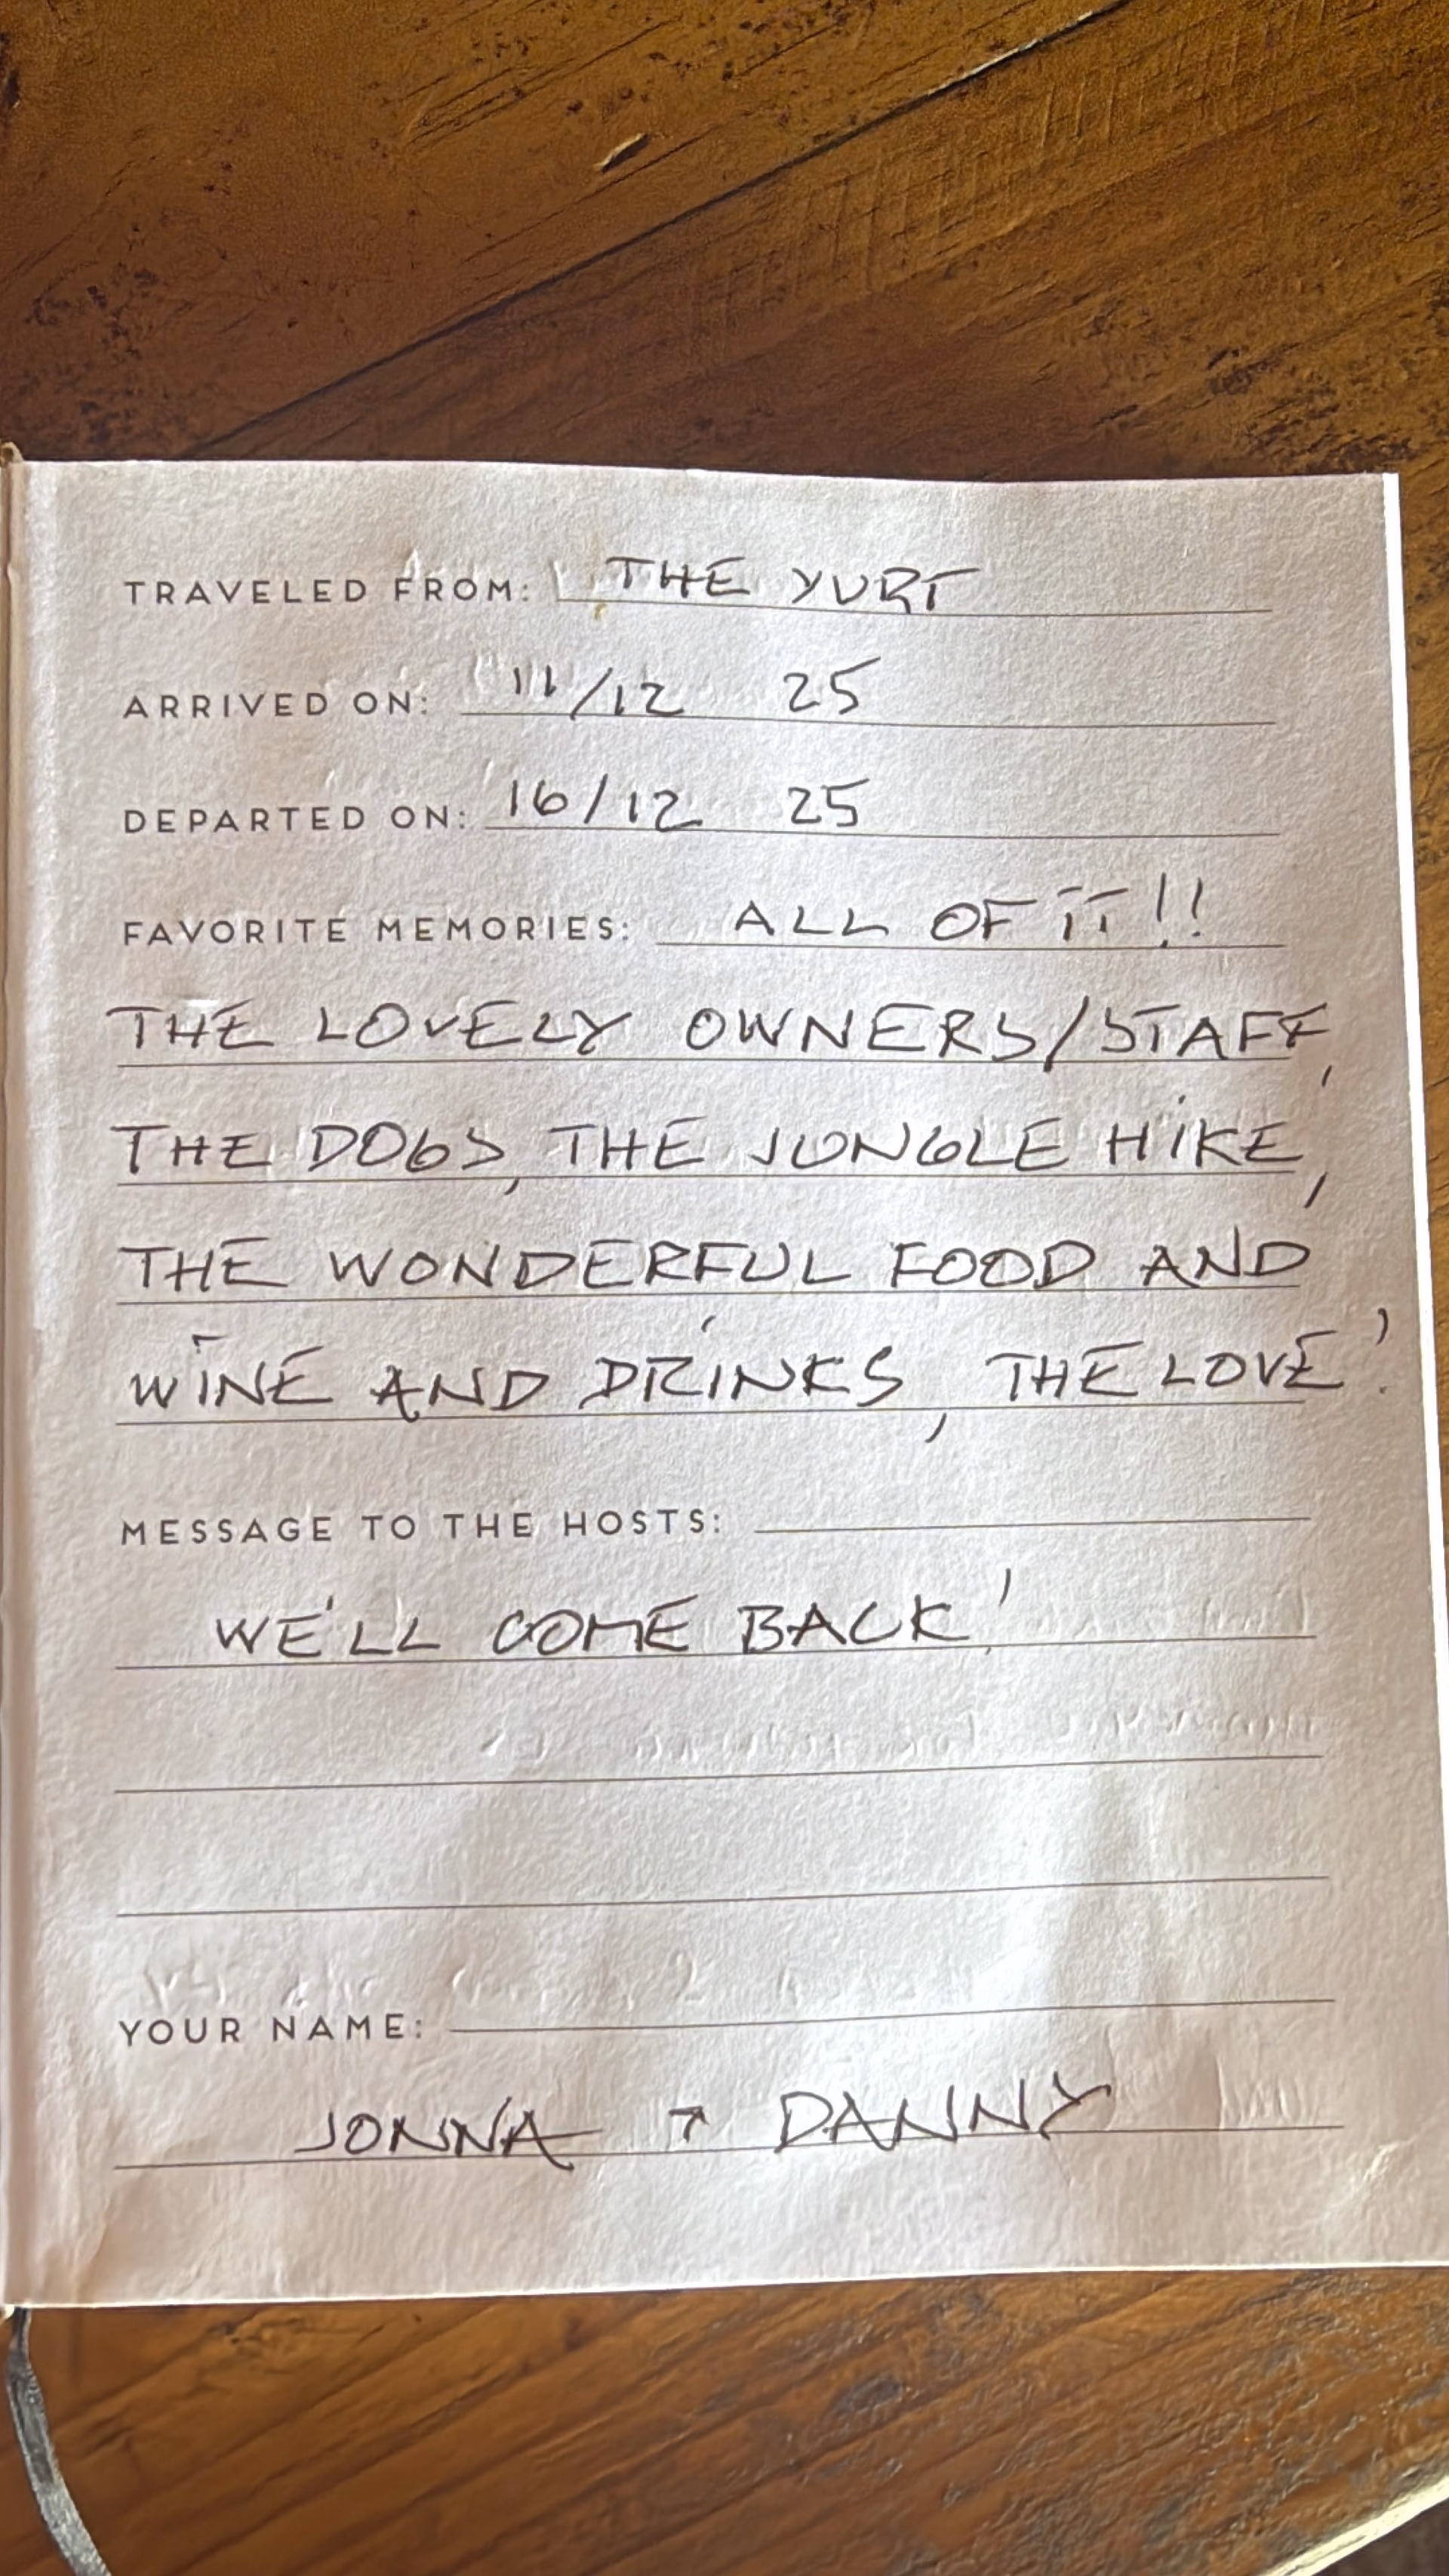 TRAVELED FROM: THE YURT
ARRIVED ON: 11/12 25
DEPARTED ON: 16/12 25
FAVORITE MEMORIES: ALL OF IT!!
THE LOVELY OWNERS/STAFF,
THE DOGS, THE JUNGLE HIKE,
THE WONDERFUL FOOD AND
WINE AND DRINKS, THE LOVE!
MESSAGE TO THE HOSTS:
WE'LL COME BACK!
YOUR NAME:
JONNA + DANNY